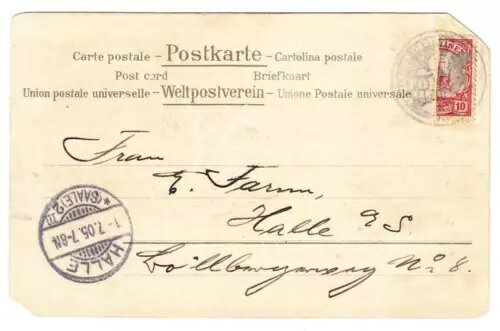 Carte postale - Postkarte - Cartolina postale
Post card Briefkaart
Union postale universelle - Weltpostverein - Unione Postale universale
10
Frau
E. Farm,
Halle a/S.
Böllbergerweg No. 8.
HALLE
*(SAALE)2
1-7.05.7-8N.